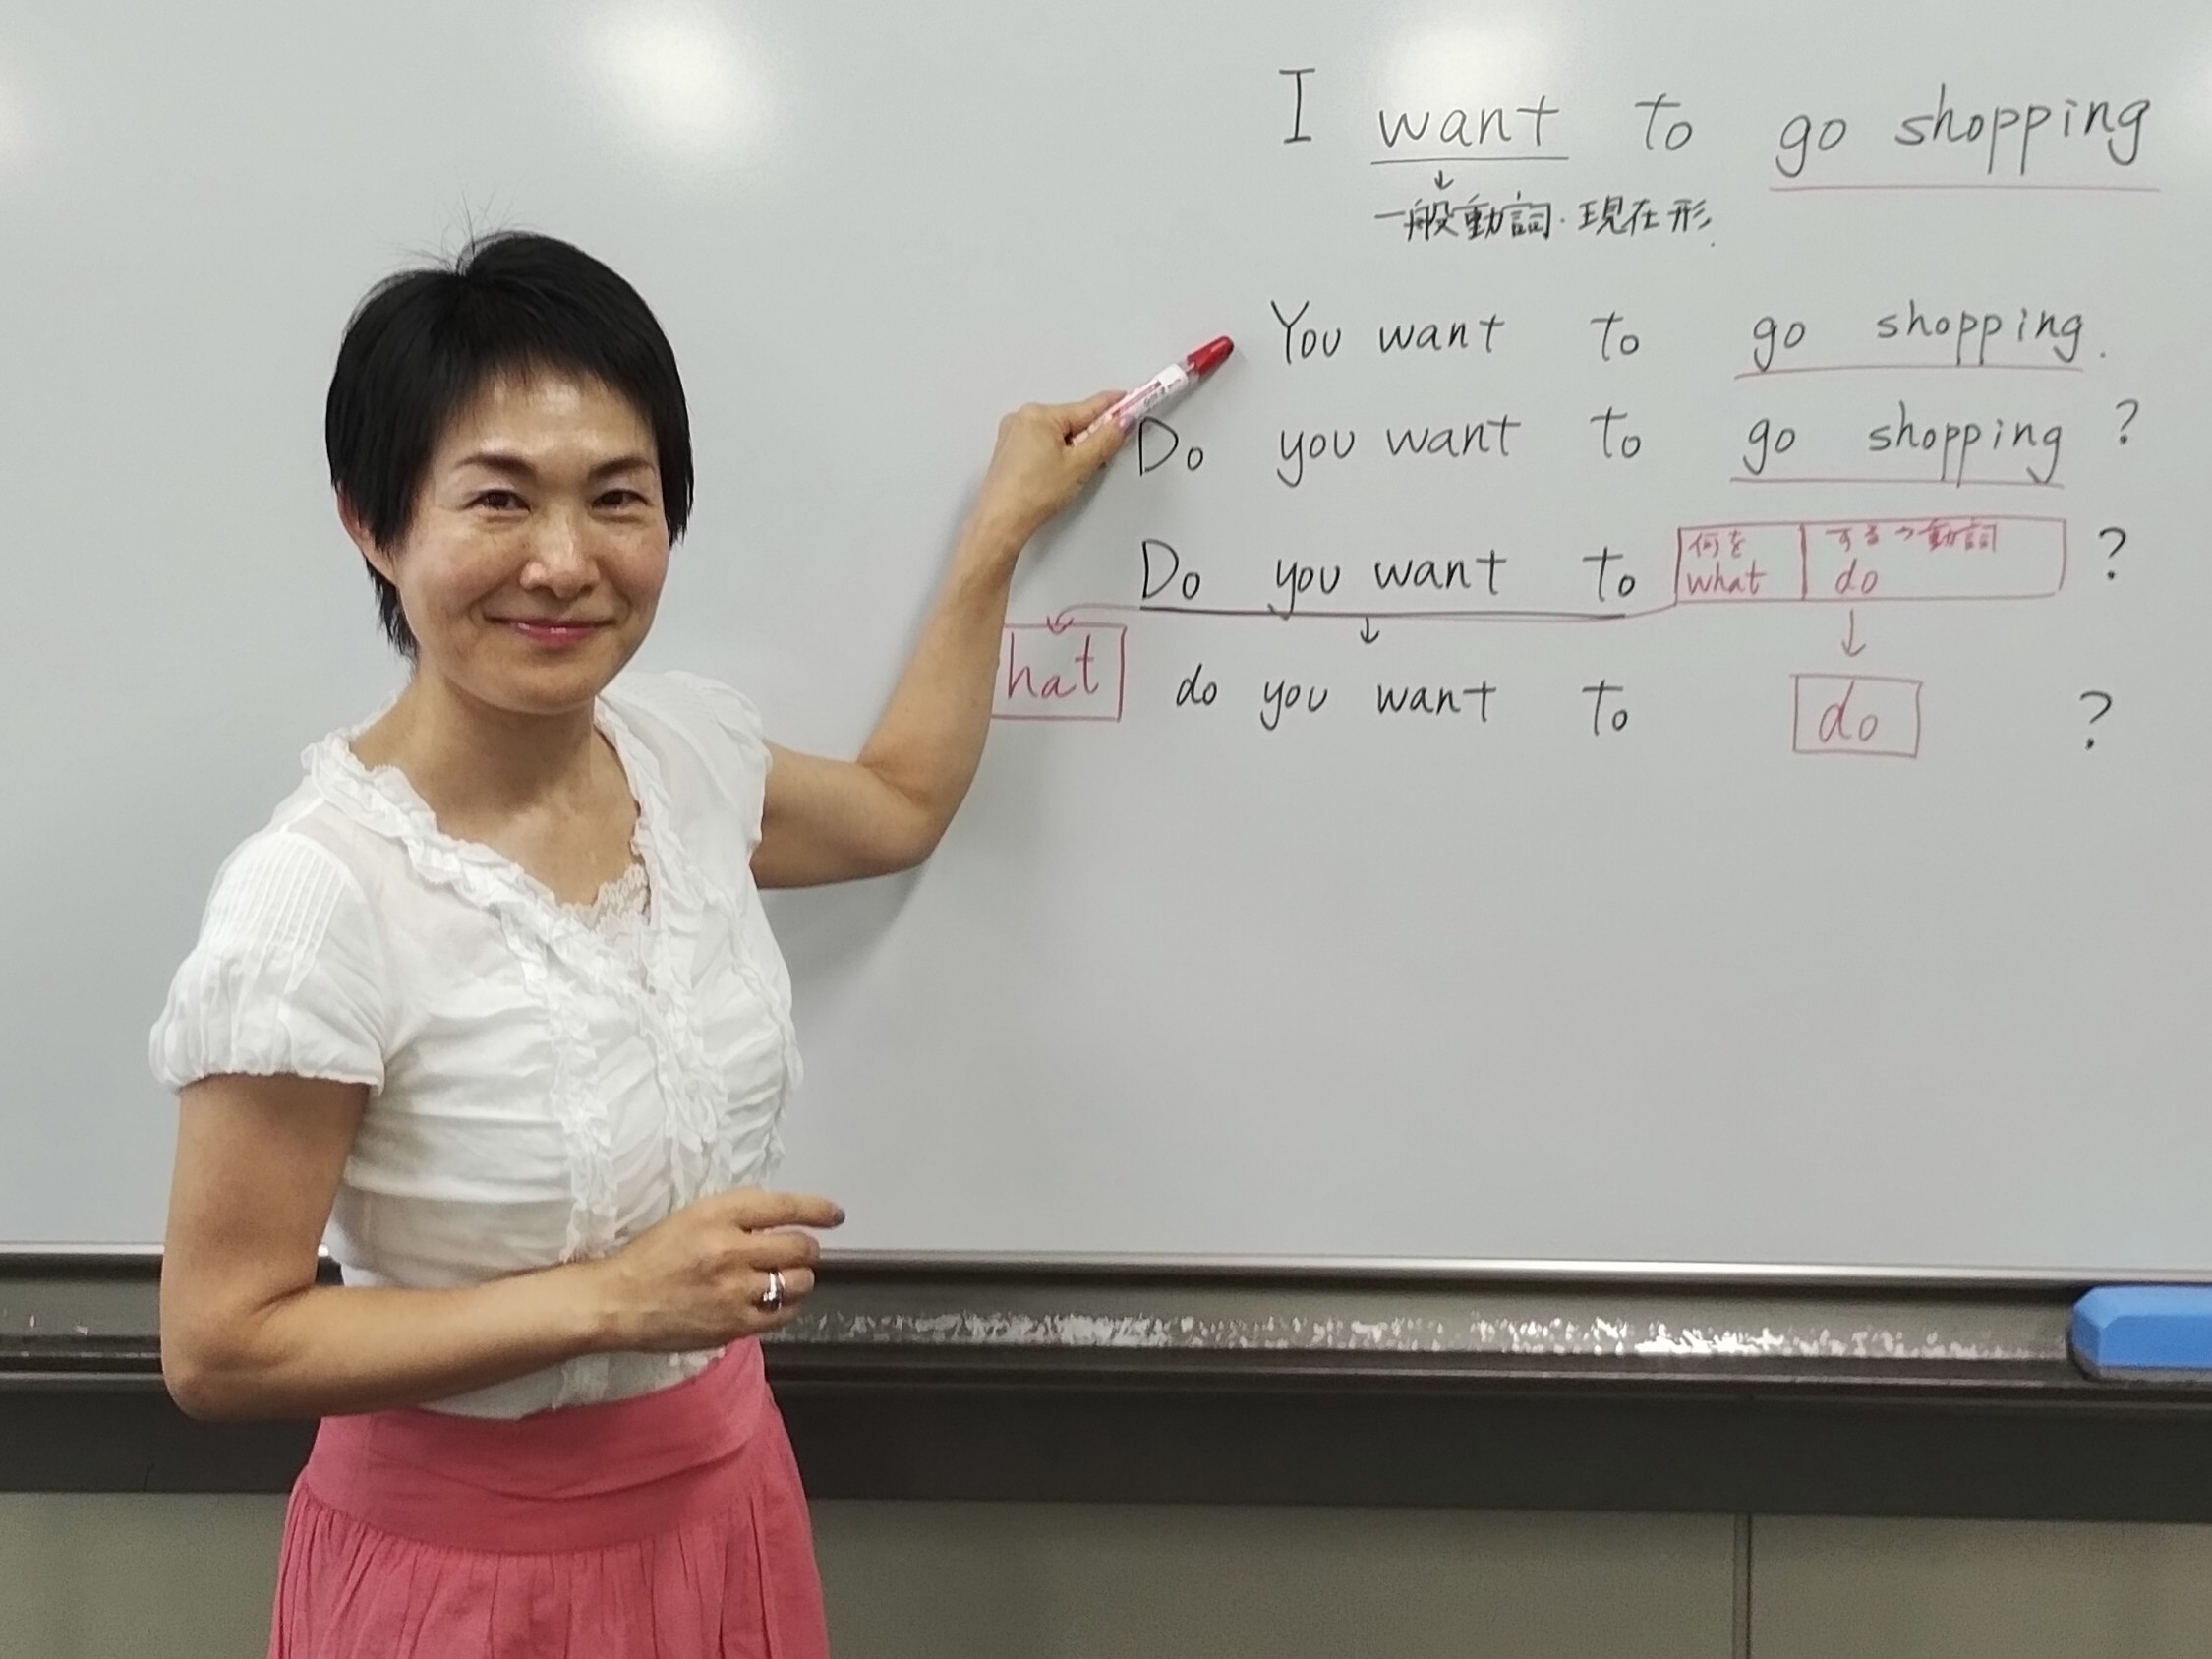 I want to go shopping
↓
一般動詞・現在形.
You want to go shopping.
Do you want to go shopping ?
何を する→動詞
Do you want to what do ?
↓ ↓
hat do you want to do ?